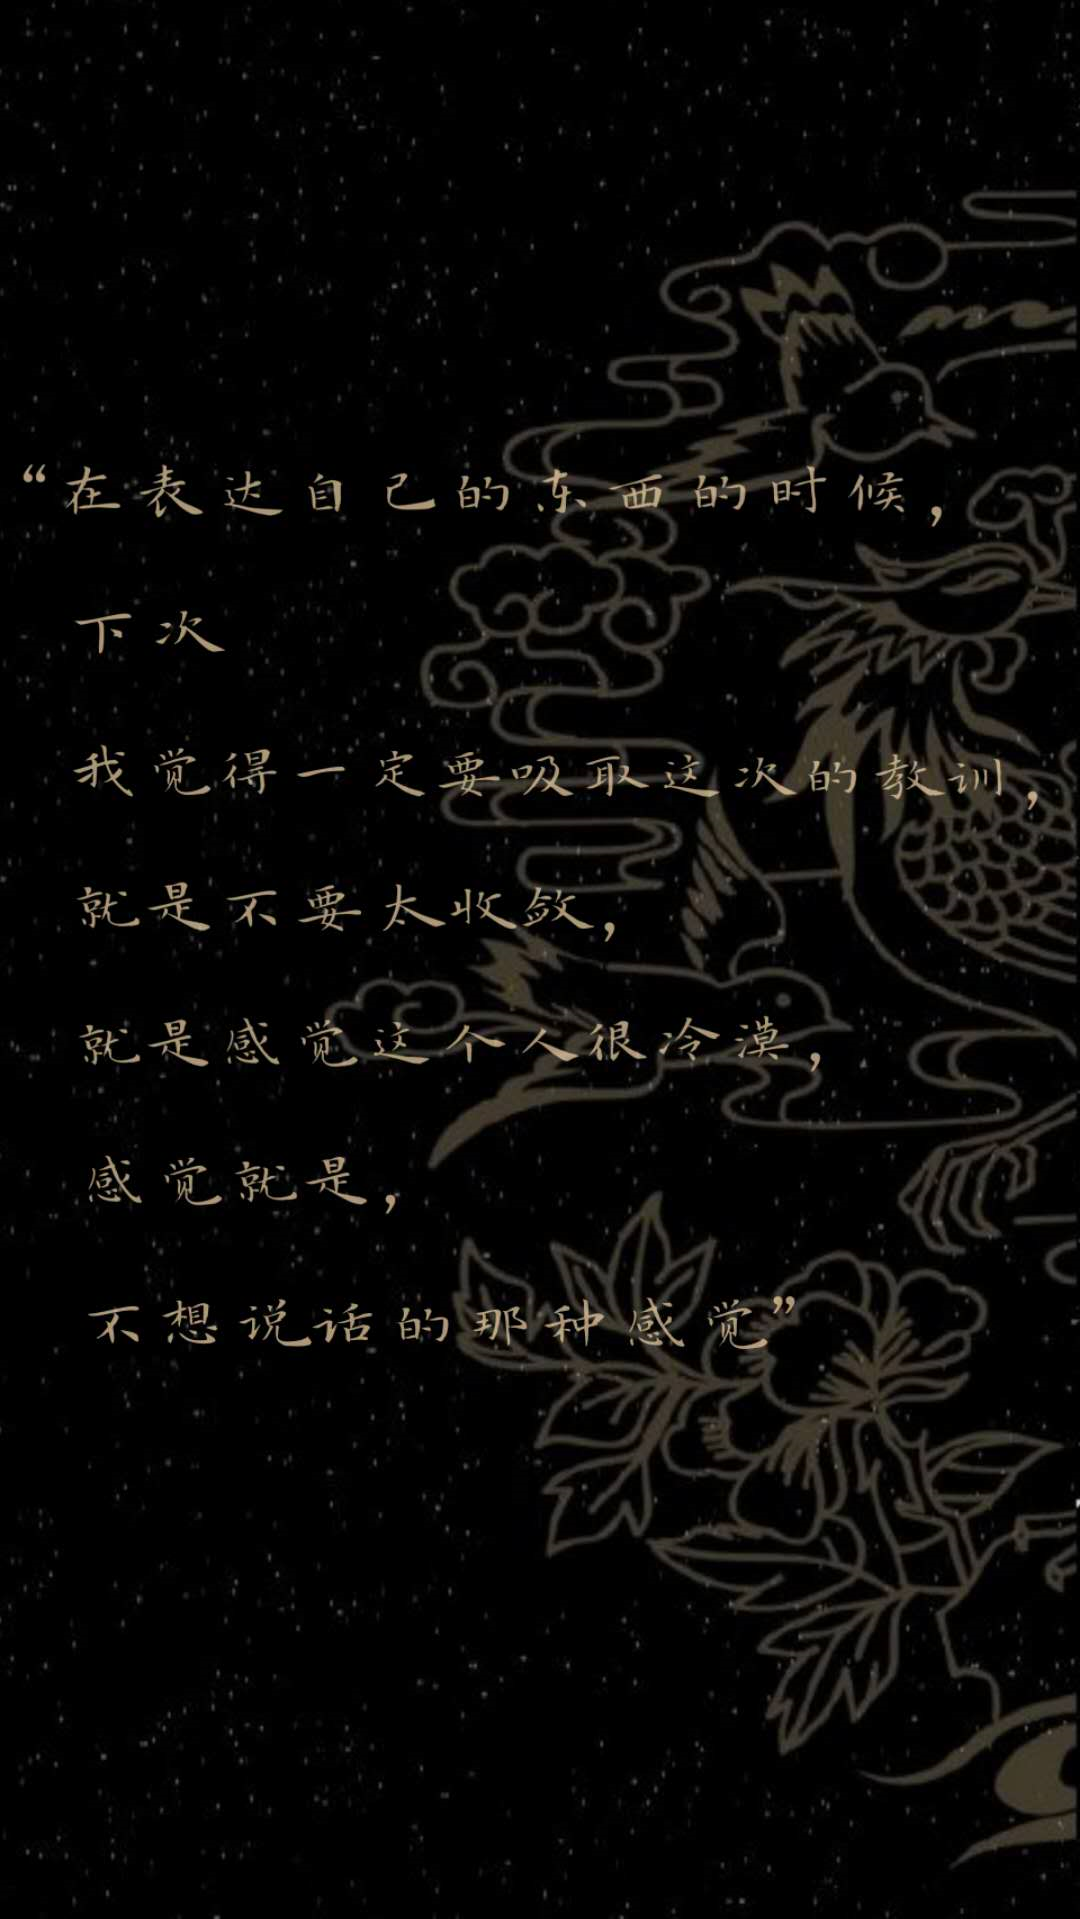 “在表达自己的东西的时候，
下次
我觉得一定要吸取这次的教训，
就是不要太收敛，
就是感觉这个人很冷漠，
感觉就是，
不想说话的那种感觉”